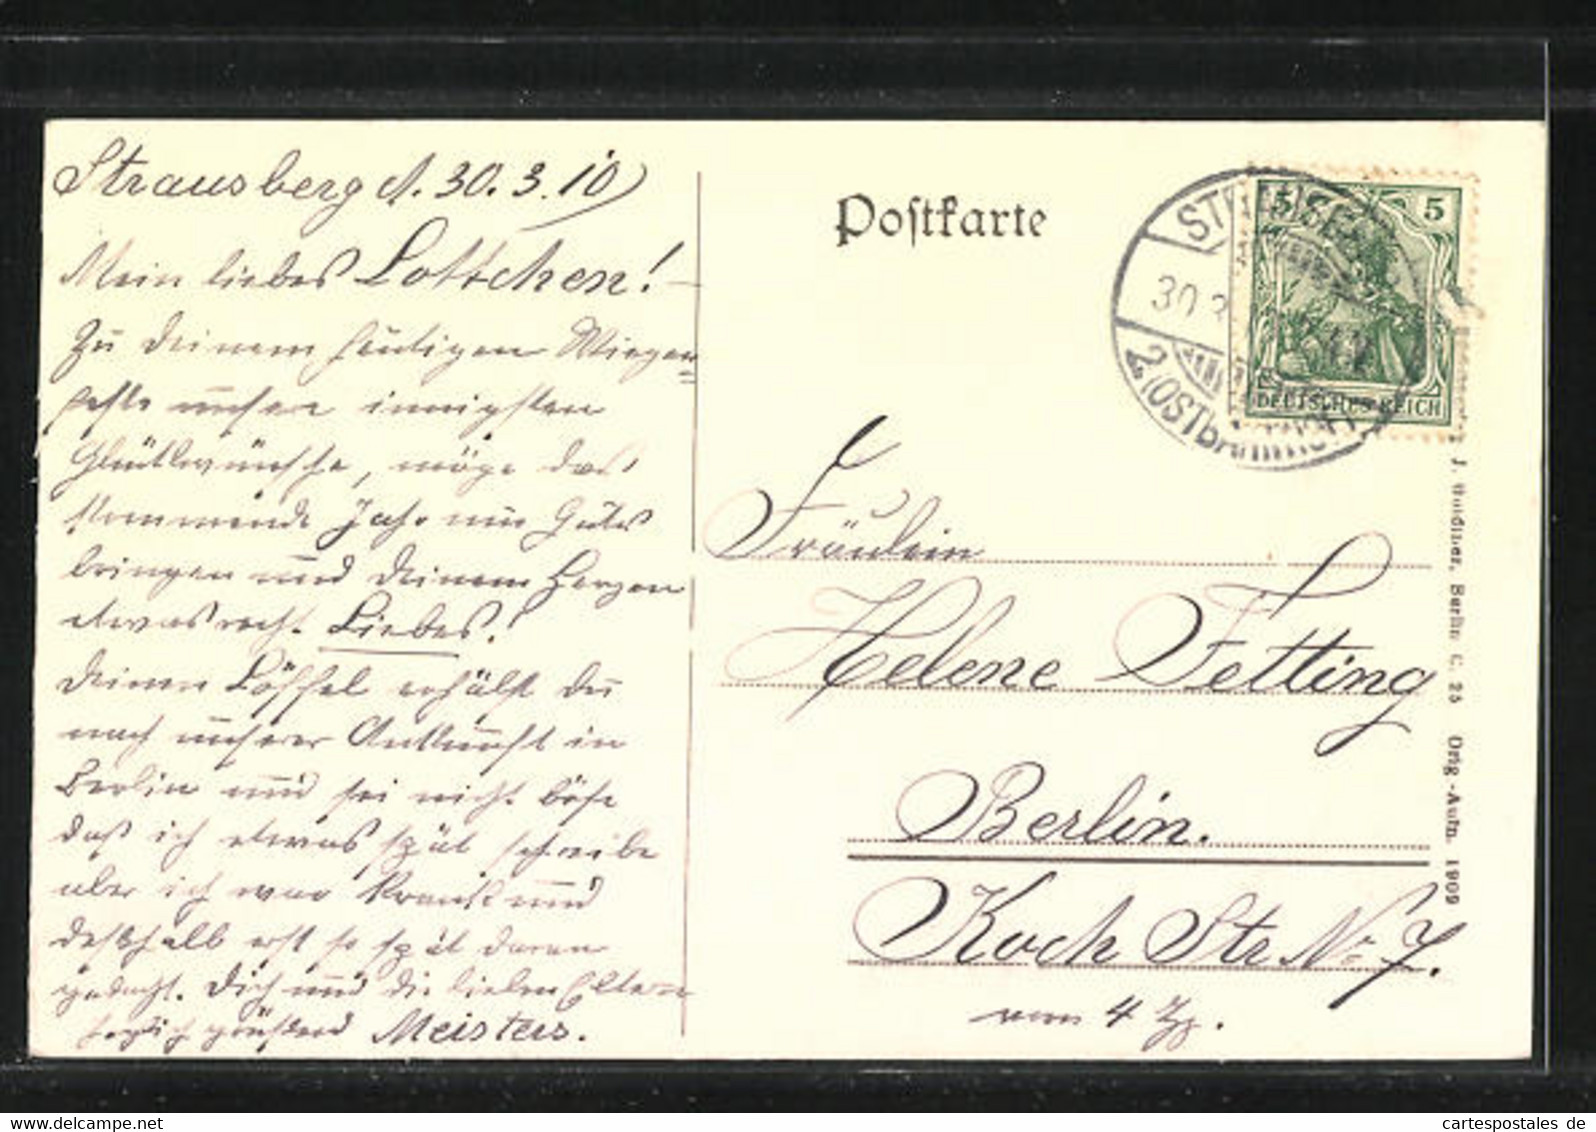 Strausberg d. 30.3.10
Mein liebes Lottchen! –
Zu Deinem heutigen Wiegen=
feste unsere innigsten
Glückwünsche, möge das
kommende Jahr nur Gutes
bringen und Deinem Herzen
etwas recht Liebes!
Deinen Löffel erhälst Du
nach unserer Ankunft in
Berlin und sei nicht böse
daß ich etwas spät schreibe
aber ich war krank und
deshalb erst so spät daran
gedacht. Dich und die lieben Eltern
herzlich grüßend Meisters.
Postkarte
5 5
DEUTSCHES REICH
30.3
2 (OSTbahnhof)
Fräulein
Helene Fetting
Berlin.
Koch Str No 7.
vorn 4 Tg.
J. Goldiner, Berlin C. 25 Orig.-Aufn. 1909
cartespostales de